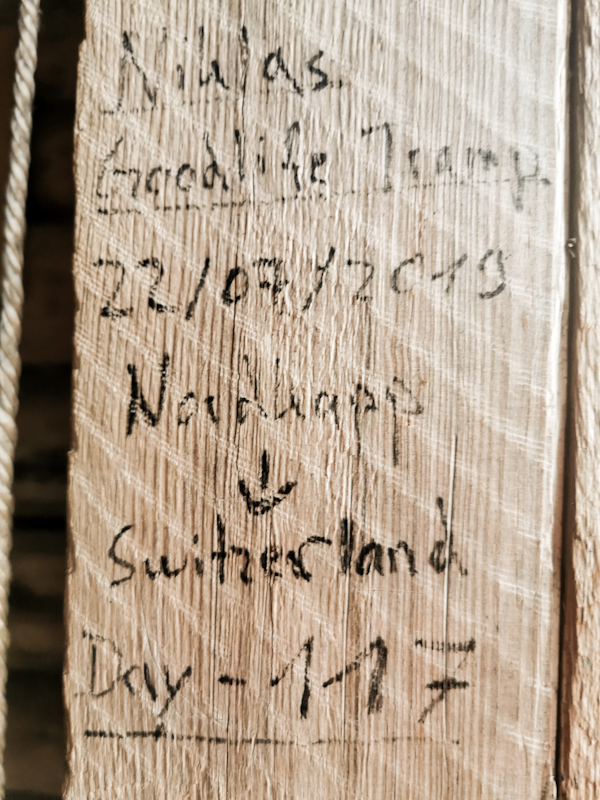 Niklas.
Goodlife Tramp
22/07/2019
Nordkapp
↓
Switzerland
Day - 117